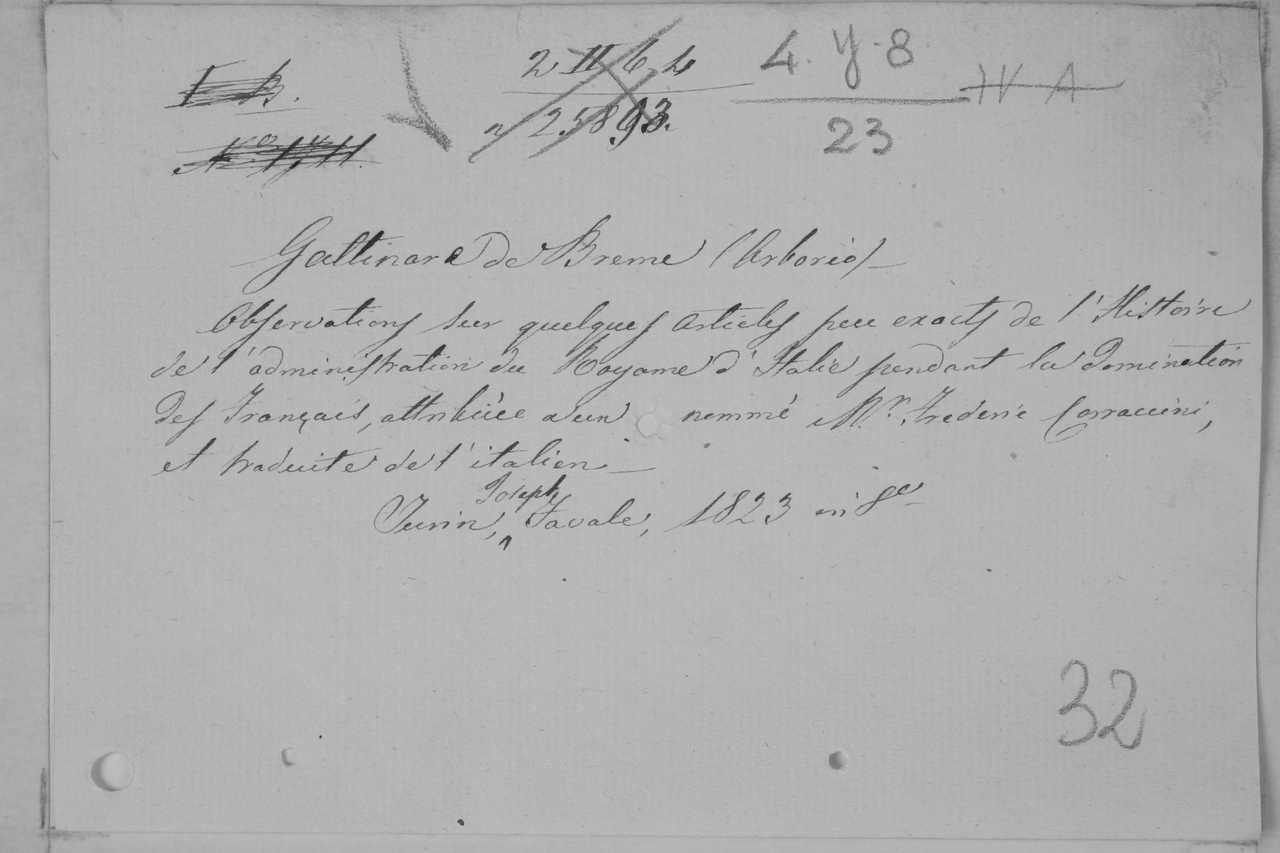 I B.
2 II 6, 4
4. Y. 8
IV A
25893.
23
Gattinara de Breme (Arborio) —
Observations sur quelques articles peu exacts de l'Histoire
de l'administration du Royame d'Italie pendant la domination
des Français, attribuée a un nommé Mr. Frederic Corraccini,
et traduite de l'italien —
Turin, Joseph Favale, 1823 in 8o
32